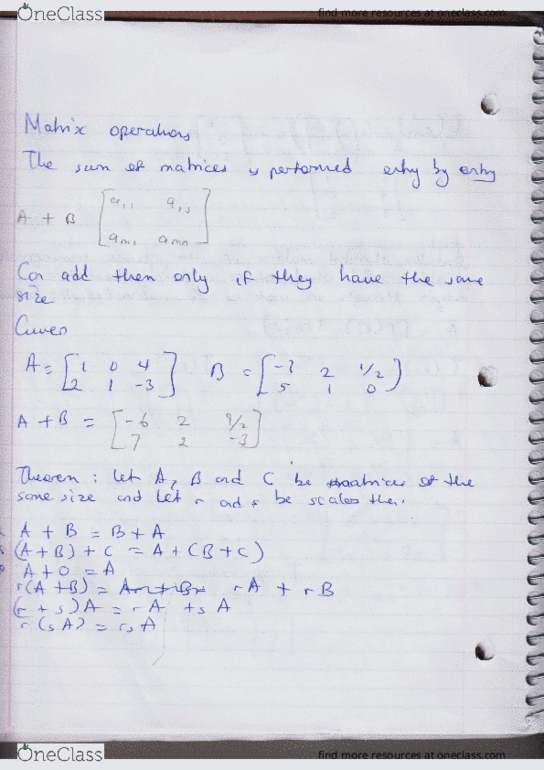 OneClass
find more resources at oneclass.com
Matrix operations
The sum of matrices is performed entry by entry
A + B [a11 a1j
am1 amn]
Can add them only if they have the same
size
Given
A = [1 0 4 B = [-7 2 1/2
2 1 -3] 5 1 0]
A + B = [-6 2 9/2
7 2 -3]
Theorem : let A, B and C be matrices of the
same size and let r and s be scales then.
A + B = B + A
(A+B) + C = A + (B+C)
A + 0 = A
r(A+B) = rA + rB
(r + s)A = rA + sA
r(sA) = rsA
OneClass
find more resources at oneclass.com